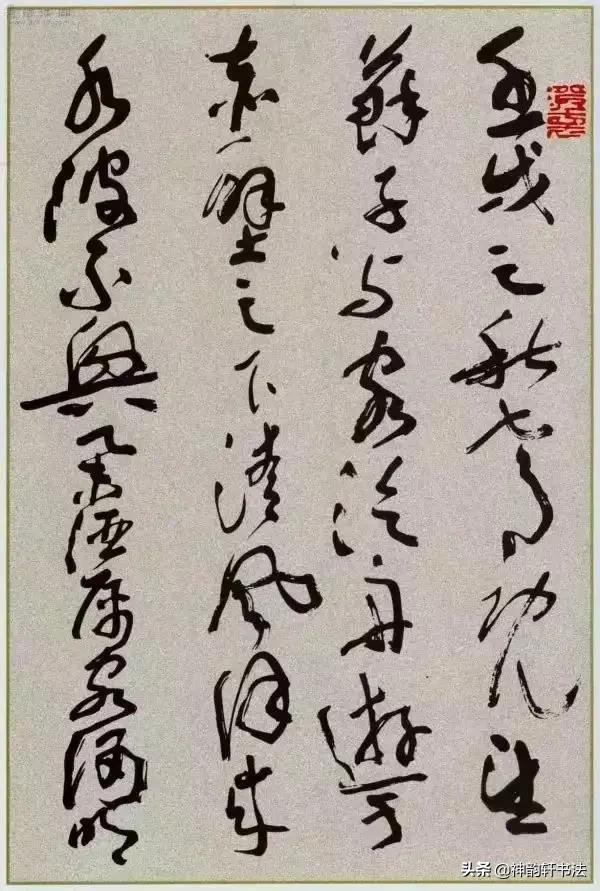 壬戌之秋七月既望
蘇子与客泛舟遊於
赤壁之下清風徐来
水波不興舉酒属客誦明
头条 @神韵轩书法